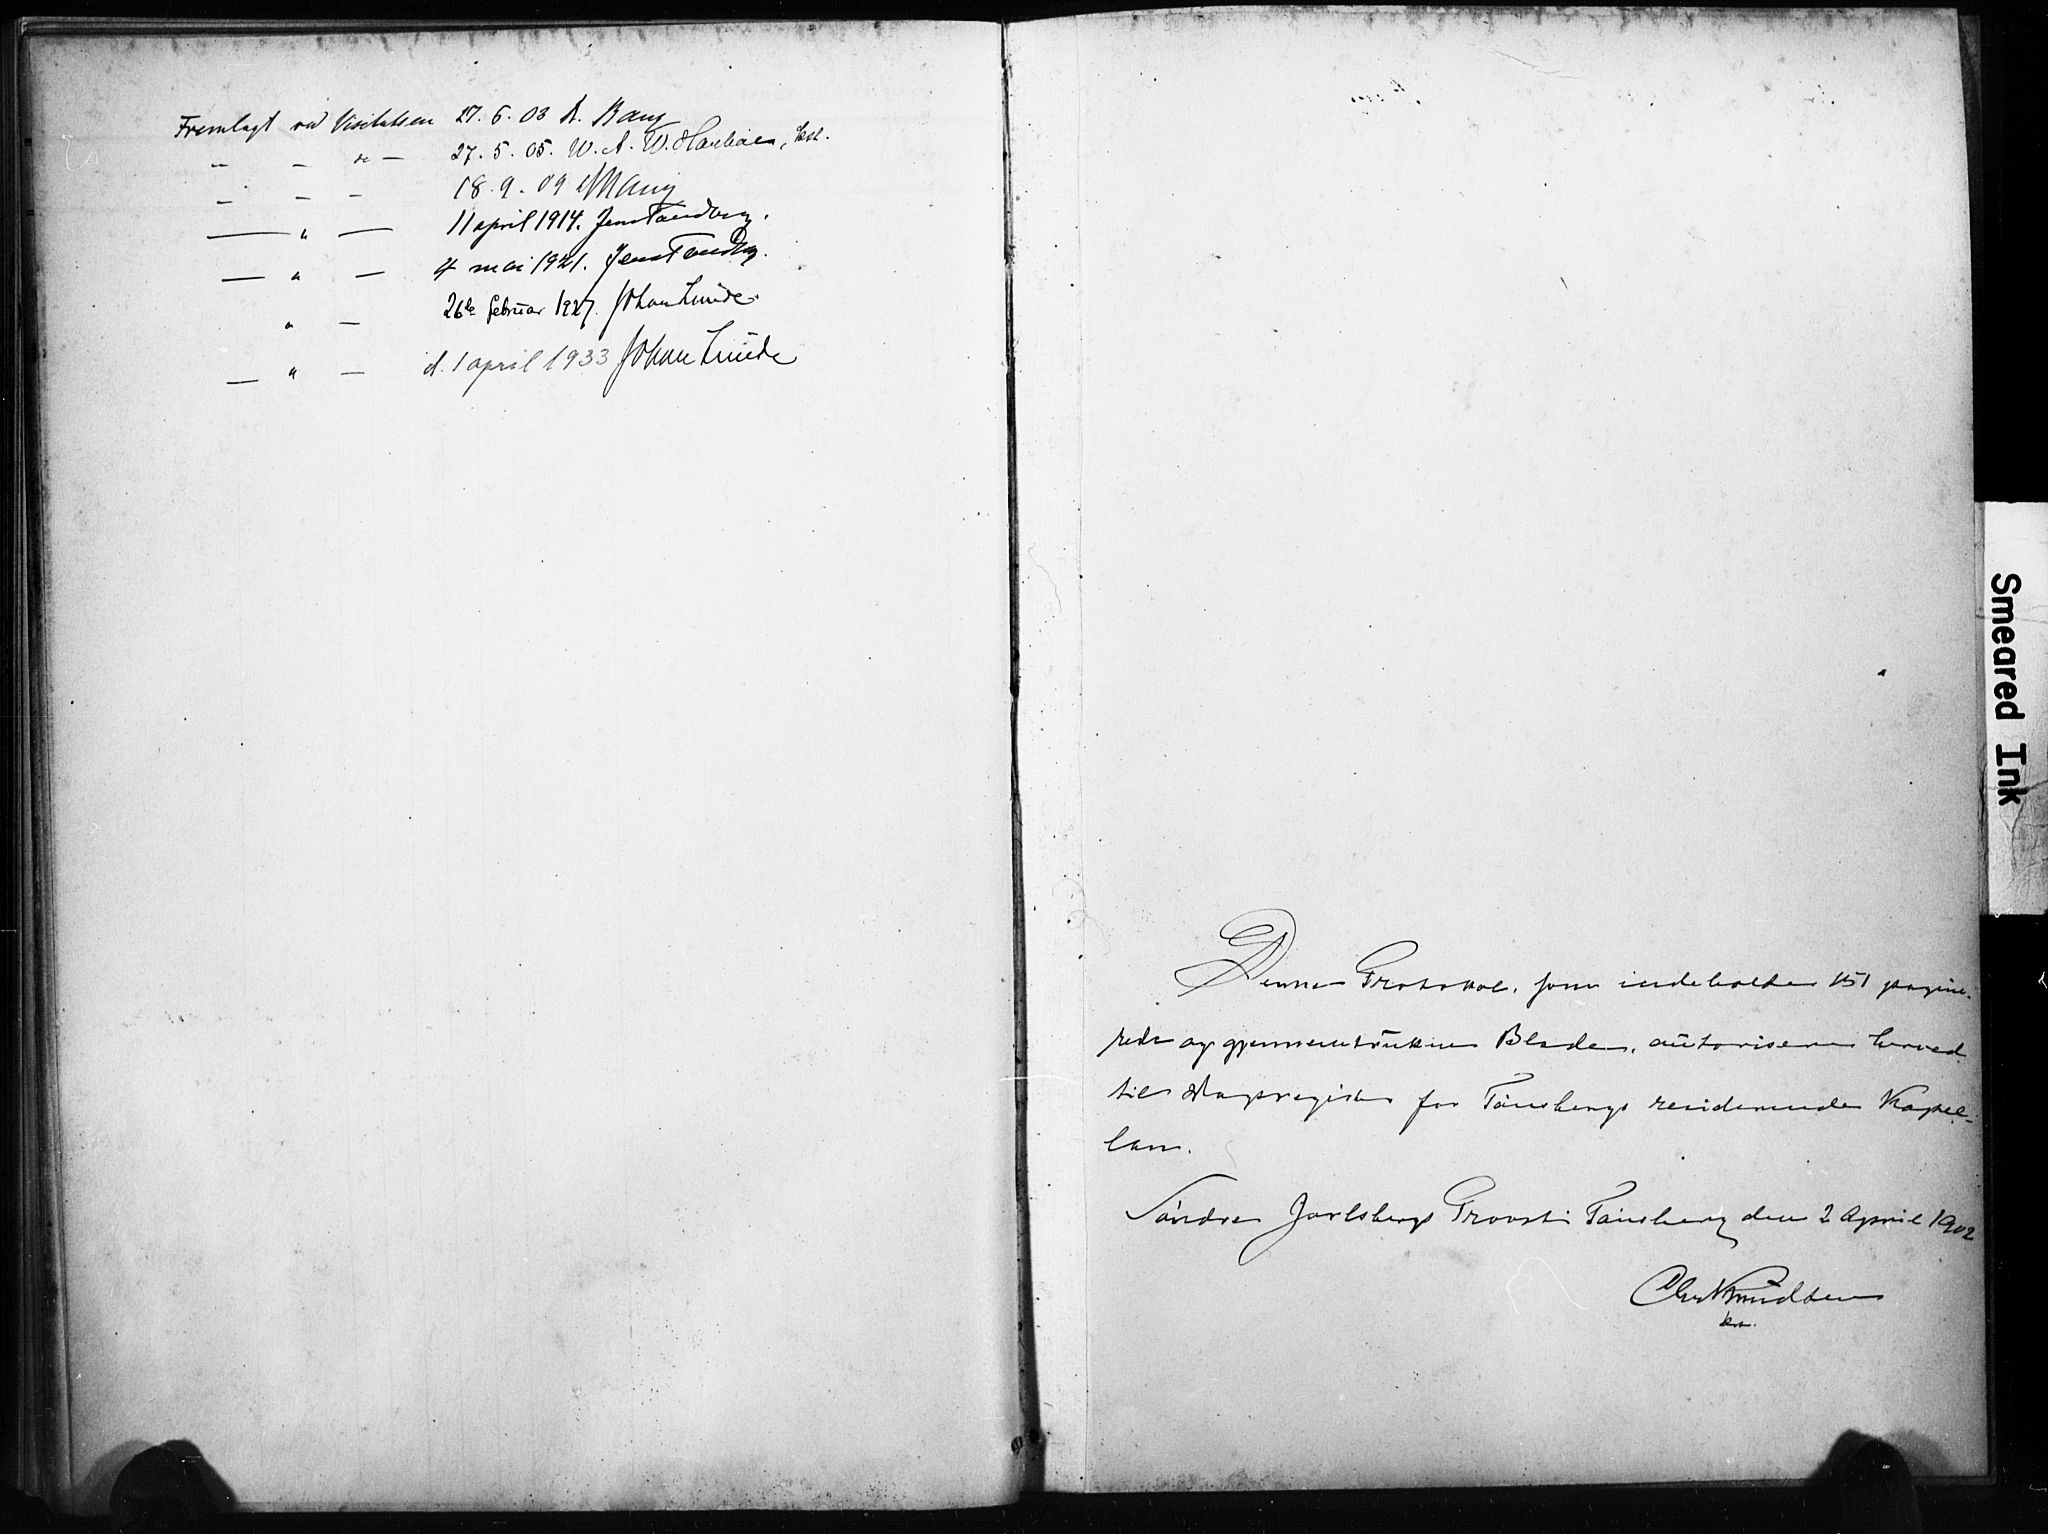 Fremlagt ved Visitatsen 27. 6. 03 A. Bang
„ — de — 27. 5. 05. W. A. W. kst.
„ — — 18. 9. 09 Bang
— „ — 11 april 1914. Jens Tandberg.
— „ — 4 mai 1921. Jens Tandberg.
„ — 26de februar 1927. Johan Lunde.
— „ — d. 1 april 1933 Johan Lunde
Denne Protokol, som indeholder 151 pagine-
rede og gjennemtrukne Blade, autoriseres herved
til Dagsregister for Tönsbergs residerende Kapel-
lan.
Söndre Jarlsbergs Provsti Tönsberg den 2 April 1902
Chr Knudsen
kst.
Smeared Ink